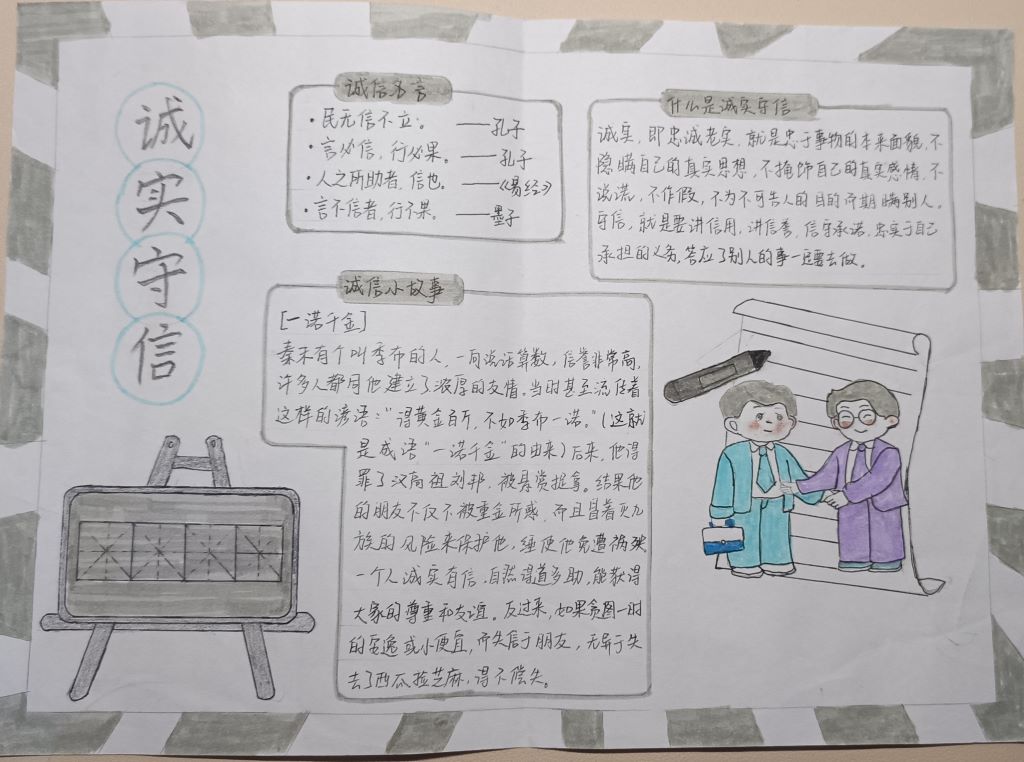 诚
实
守
信
诚信名言
·民无信不立。 ——孔子
·言必信，行必果。 ——孔子
·人之所助者，信也。 ——《易经》
·言不信者，行不果。 ——墨子
什么是诚实守信
诚实，即忠诚老实，就是忠于事物的本来面貌，不
隐瞒自己的真实思想，不掩饰自己的真实感情，不
说谎，不作假，不为不可告人的目的而欺瞒别人。
守信，就是要讲信用，讲信誉，信守承诺，忠实于自己
承担的义务，答应了别人的事一定要去做。
诚信小故事
[一诺千金]
秦末有个叫季布的人，一向说话算数，信誉非常高，
许多人都同他建立了浓厚的友情。当时甚至流传着
这样的谚语：“得黄金百斤，不如季布一诺。”（这就
是成语“一诺千金”的由来）后来，他得
罪了汉高祖刘邦，被悬赏捉拿。结果他
的朋友不仅不被重金所惑，而且冒着灭九
族的风险来保护他，使他免遭祸殃
一个人诚实有信，自然得道多助，能获得
大家的尊重和友谊。反过来，如果贪图一时
的安逸或小便宜，而失信于朋友，无异于失
去了西瓜捡芝麻，得不偿失。